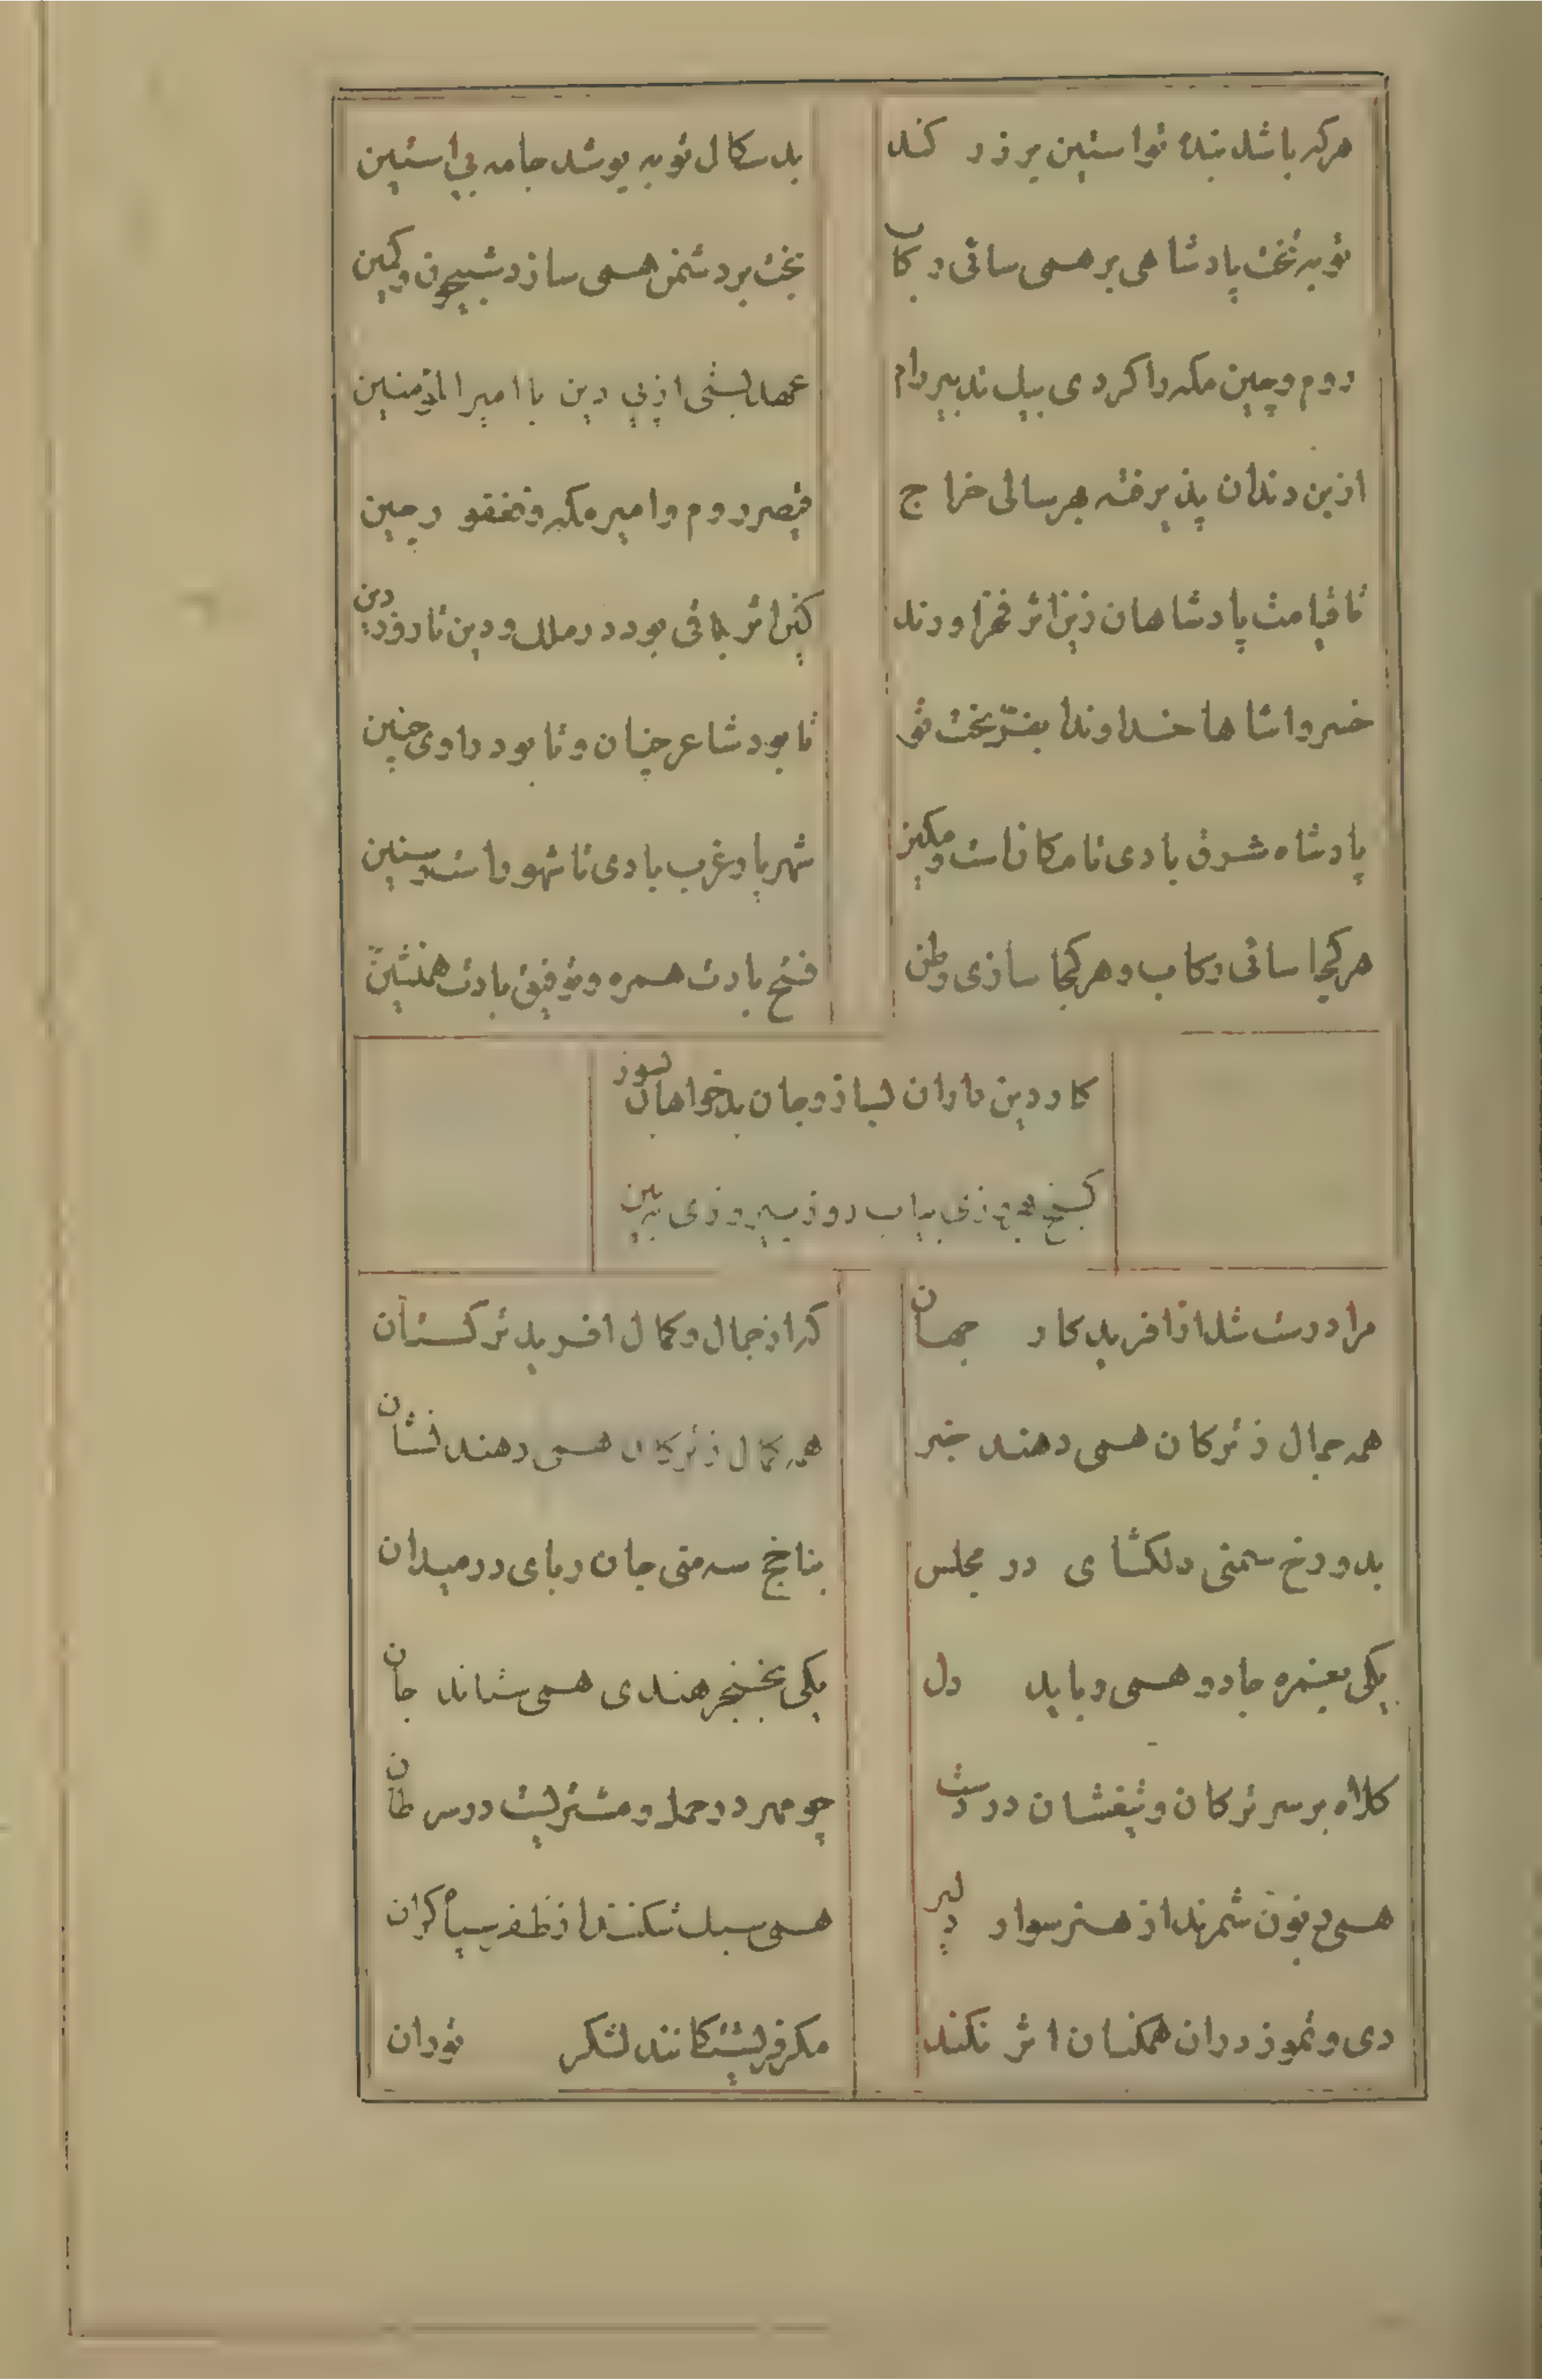 هرکه باشد بندهٔ تو استین پر زر کند
بدسکال تو به پوشد جامه بی استین
تو به تخت پادشاهی بر همی سائی رکاب
بخت بر دشمن همی سازد شبیخون و کمین
روم و چین مکه را کردی بیک تدبیر رام
عهد بستی از پی دین با امیر المؤمنین
از بن دندان پذیرفته بهر سالی خراج
قیصر روم و امیر مکه و فغفور چین
تا قیامت پادشاهان زین اثر فخر اورند
کین اثر باقی بود در ملک و دین تا روز دین
خسروا شاها خداوندا بفرّ بخت تو
تا بود شاعر چنان و تا بود راوی چنین
پادشاه شرق بادی تا مکانست و مکین
شهریار غرب بادی تا شهور است و سنین
هر کجا سائی رکاب و هر کجا سازی وطن
فتح بادت همره و توفیق بادت همنشین
کار دین داران بساز و جان بدخواهان بسوز
گنج بهروزی بیاب روز پیروزی ببین
مرا درست شد از افریدکار جهان
که از جمال و کمال افرید ترکستان
همه جمال ز ترکان همی دهند خبر
همه کمال ز ترکان همی دهند نشان
بدو رخ سمنی دلکشای در مجلس
بناخج سه منی جان ربای در میدان
یکی بغمزه جادو همی رباید دل
یکی بخنجر هندی همی ستاند جان
کلاه بر سر ترکان و تیغشان در دست
چو مهر در حمل و مشتریست در سرطان
همی شمرند از هنر سوار دلیر
همی سبک شکنند از ظفر سپاه کران
دی و تموز در ان همکنان اثر نکند
مکر فریشتکانند لشکر توران